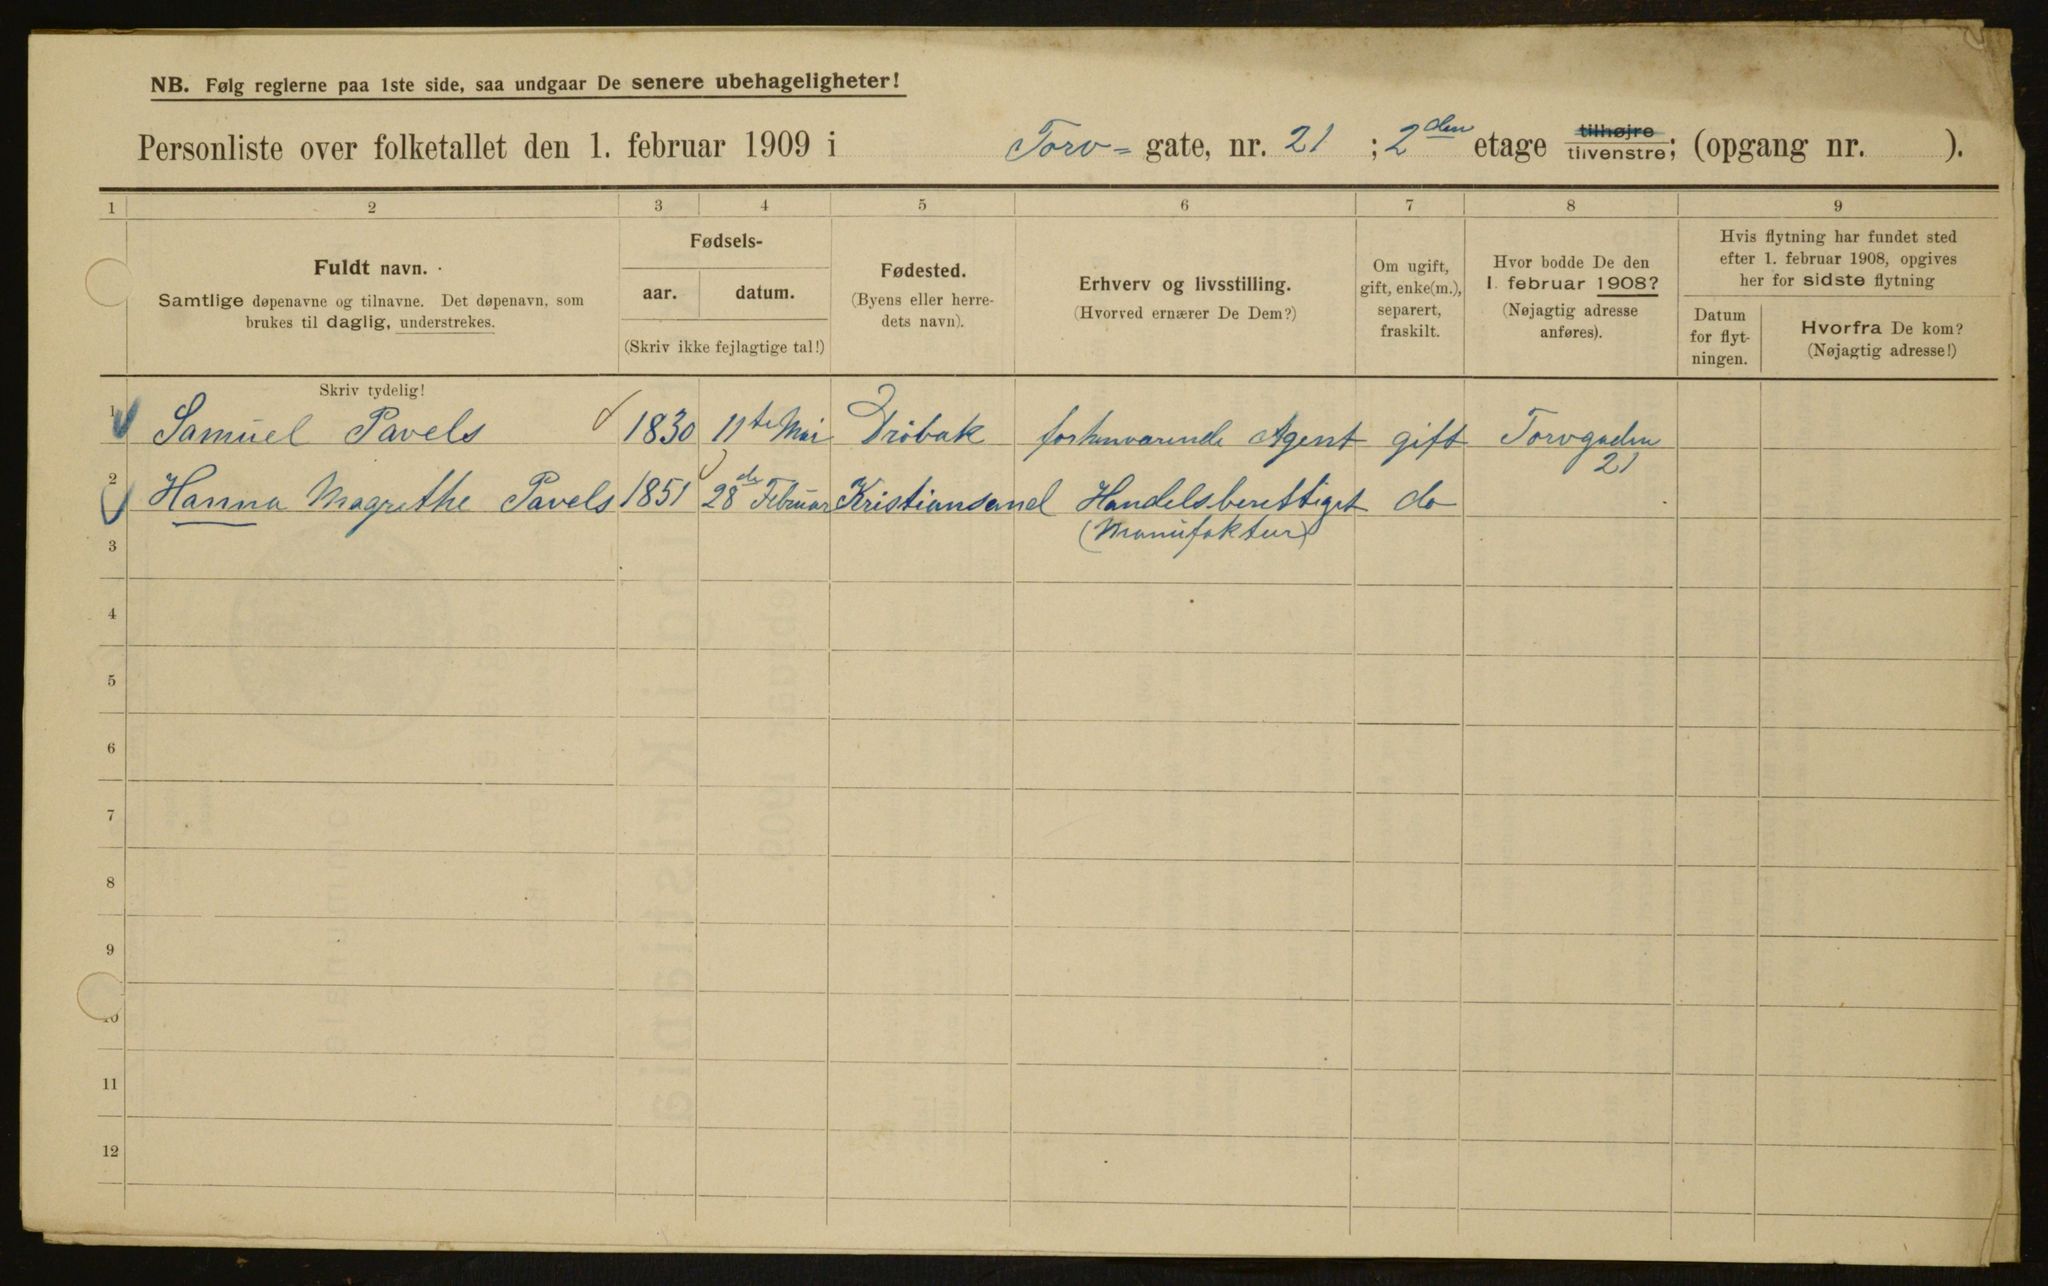 NB. Følg reglerne paa 1ste side, saa undgaar De senere ubehageligheter!
Personliste over folketallet den 1. februar 1909 i Torv= gate, nr. 21 ; 2den etage tilhøjre tilvenstre; (opgang nr. ).
1 2 3 4 5 6 7 8 9
Fuldt navn.
Samtlige døpenavne og tilnavne. Det døpenavn, som
brukes til daglig, understrekes.
Fødsels-
aar. datum.
(Skriv ikke fejlagtige tal!)
Fødested.
(Byens eller herre-
dets navn).
Erhverv og livsstilling.
(Hvorved ernærer De Dem?)
Om ugift,
gift, enke(m.),
separert,
fraskilt.
Hvor bodde De den
1. februar 1908?
(Nøjagtig adresse
anføres).
Hvis flytning har fundet sted
efter 1. februar 1908, opgives
her for sidste flytning
Datum
for flyt-
ningen.
Hvorfra De kom?
(Nøjagtig adresse!)
Skriv tydelig!
1 Samuel Pavels 1830 11te Mai Drøbak forhenværende Agent gift Torvgaden
21
2 Hanna Magrethe Pavels 1851 28de Februar Kristiansand Handelsberettiget do
(Manufaktur)
3
4
5
6
7
8
9
10
11
12